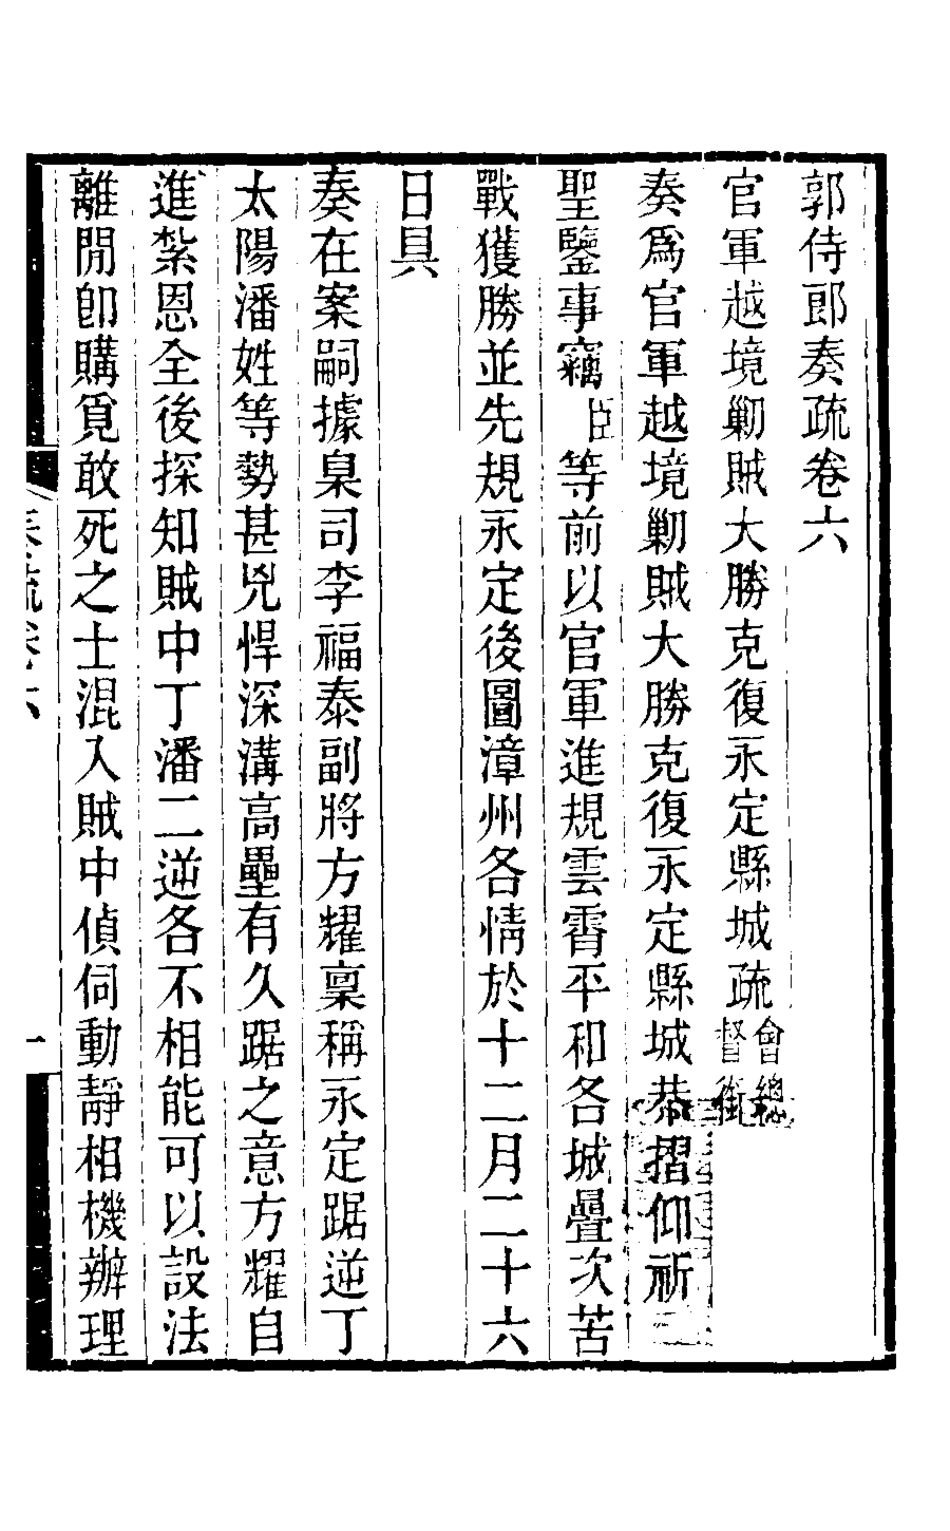 郭侍郎奏疏卷六
官軍越境剿賊大勝克復永定縣城疏會總督銜
奏爲官軍越境剿賊大勝克復永定縣城恭摺仰祈
聖鑒事竊臣等前以官軍進規雲霄平和各城疊次苦
戰獲勝並先規永定後圖漳州各情於十二月二十六
日具
奏在案嗣據臬司李福泰副將方耀稟稱永定踞逆丁
太陽潘姓等勢甚兇悍深溝高壘有久踞之意方耀自
進紮恩全後探知賊中丁潘二逆各不相能可以設法
離閒卽購覓敢死之士混入賊中偵伺動靜相機辦理
奏疏卷六
一